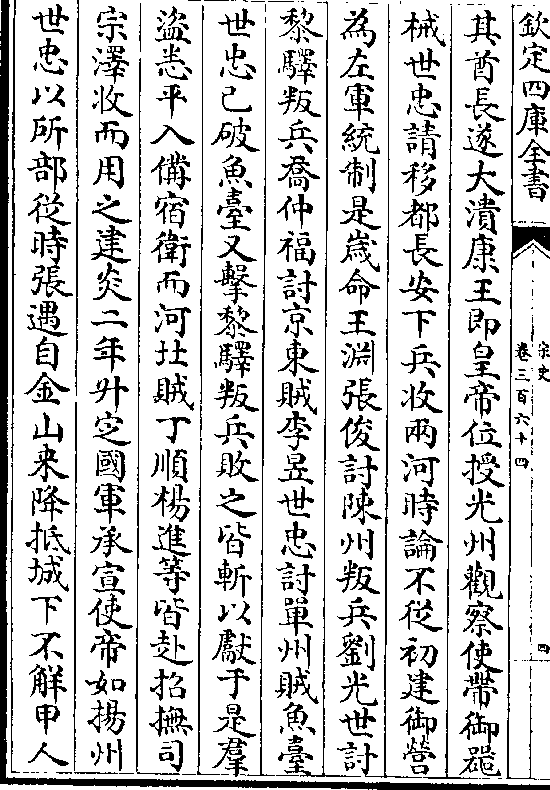 欽定四庫全書
宋史
卷三百六十四
四
其酋長遂大潰康王即皇帝位授光州觀察使帶御器
械世忠請移都長安下兵收兩河時論不從初建御營
為左軍統制是歳命王淵張俊討陳州叛兵劉光世討
黎驛叛兵喬仲福討京東賊李昱世忠討單州賊魚臺
世忠已破魚臺又擊黎驛叛兵敗之皆斬以獻于是羣
盜悉平入備宿衛而河北賊丁順楊進等皆赴招撫司
宗澤收而用之建炎二年升定國軍承宣使帝如揚州
世忠以所部從時張遇自金山来降抵城下不解甲人